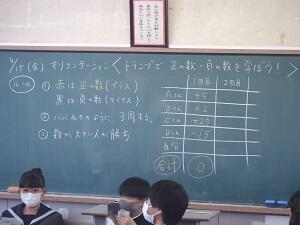 4/15(金) オリエンテーション〈トランプで 正の数・負の数を学ぼう！〉
ルール
① 赤は正の数(プラス)
黒は負の数(マイナス)
② ババぬきのように 3周する。
③ 数が大きい人が勝ち
1回目 2回目
Aさん +5
Bさん +2
Cさん
Dさん -15
自分
合計 0